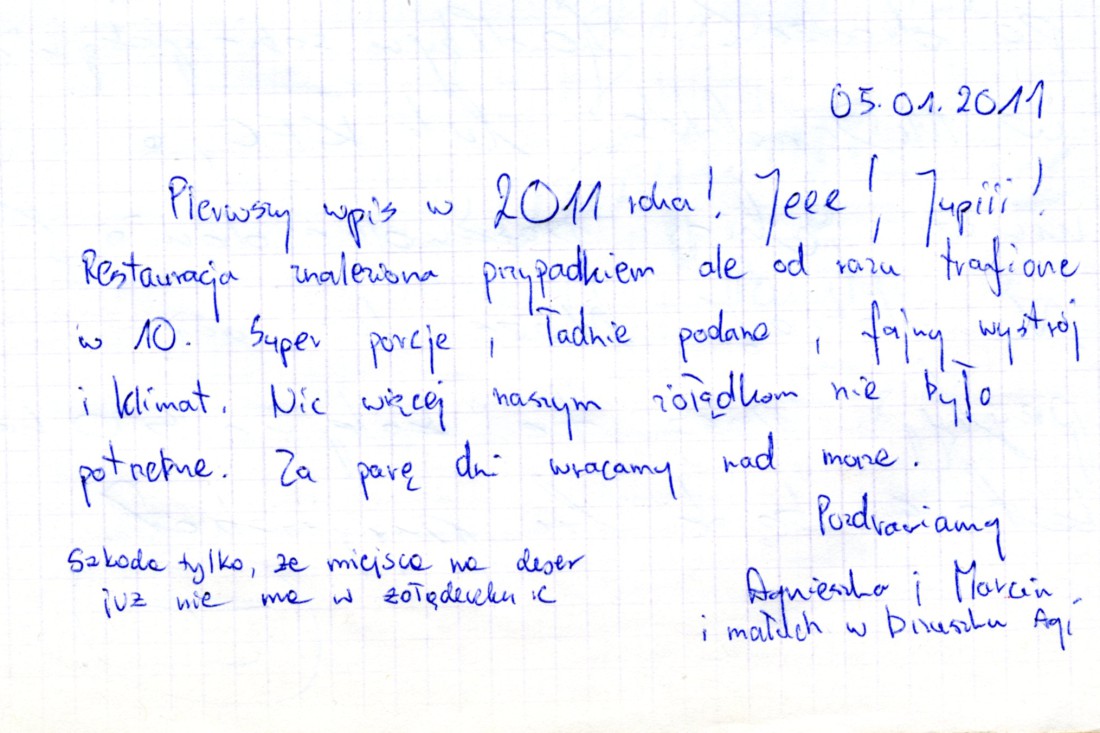 05.01.2011
Pierwszy wpis w 2011 roku! Jeee! Jupiii!
Restauracja znaleziona przypadkiem ale od razu trafione
w 10. Super porcje, ładnie podane, fajny wystrój
i klimat. Nic więcej naszym żołądkom nie było
potrzebne. Za parę dni wracamy nad morze.
Pozdrawiamy
Szkoda tylko, że miejsca na deser
już nie ma w żołądeczku :(
Agnieszka i Marcin
i maluch w brzuszku Agi